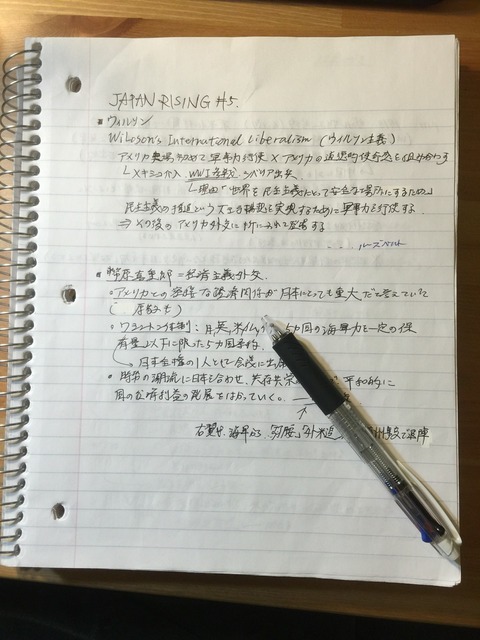 JAPAN RISING #5.
・ウィルソン
Wiloson's International Liberalism (ウィルソン主義)
アメリカ史上初めて軍事力行使×アメリカの道徳的使命感を組み合わす
└メキシコ介入、WWI参戦、シベリア出兵
└理由「世界を民主主義にとって安全な場所にするため」
民主主義の推進という
を実現するために軍事力を行使する
⇒その後のアメリカ外交に
影響する
ルーズベルト
・幣原喜重郎=経済主義外交
○アメリカとの密接な経済関係が日本にとっても重大だと考えていた
( 原敬も)
○ワシントン体制:日、英、米、仏、
5カ国の海軍力を一定の保
有量以下に限った5カ国条約
└日本全権の1人として会議に出
・時代の潮流に日本も合わせ、共存共栄
平和的に
国の経済利益の発展をはかっていく。
右翼や、海軍から「弱腰」「外米追
で退陣